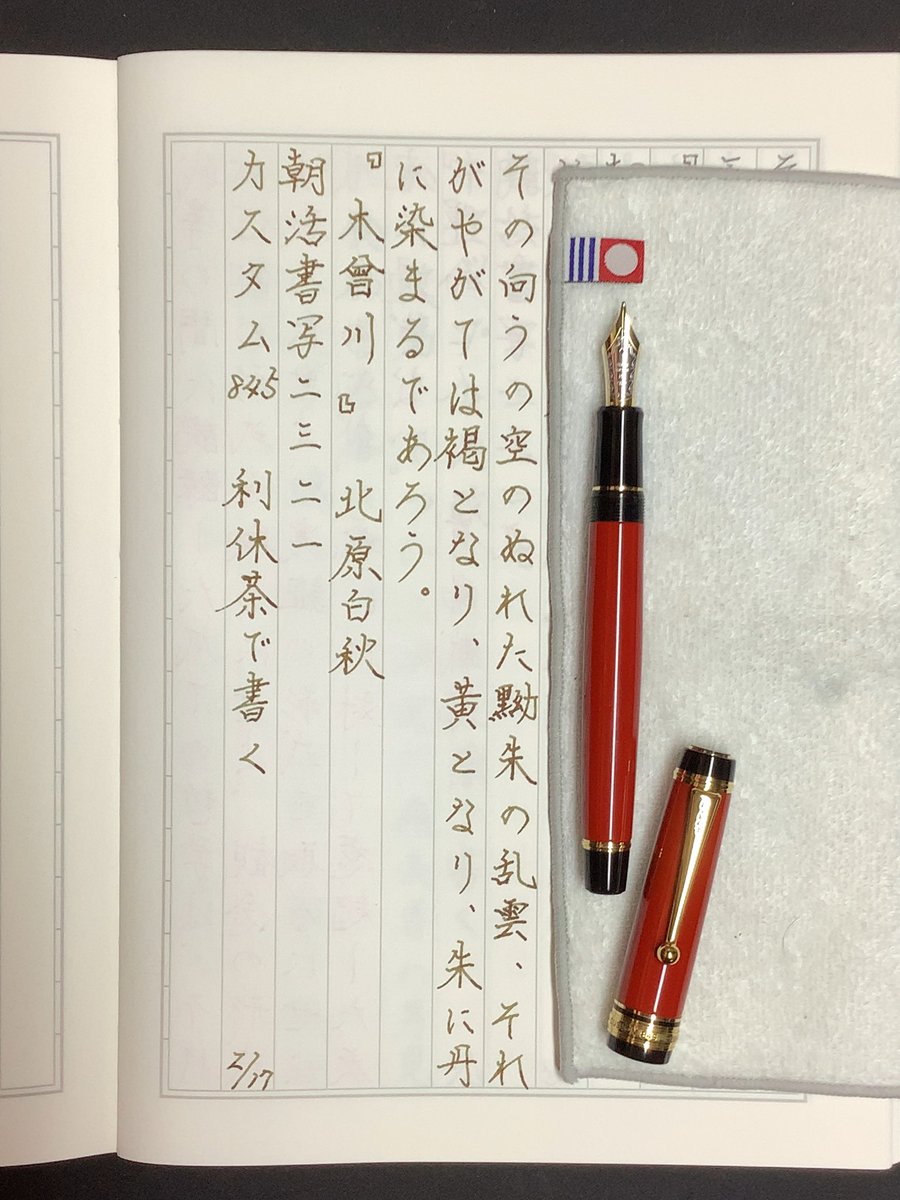 その向うの空のぬれた黝朱の乱雲、それ
がやがては褐となり、黄となり、朱に丹
に染まるであろう。
『木曾川』 北原白秋
朝活書写二三二一
カスタム845 利休茶で書く 2/17